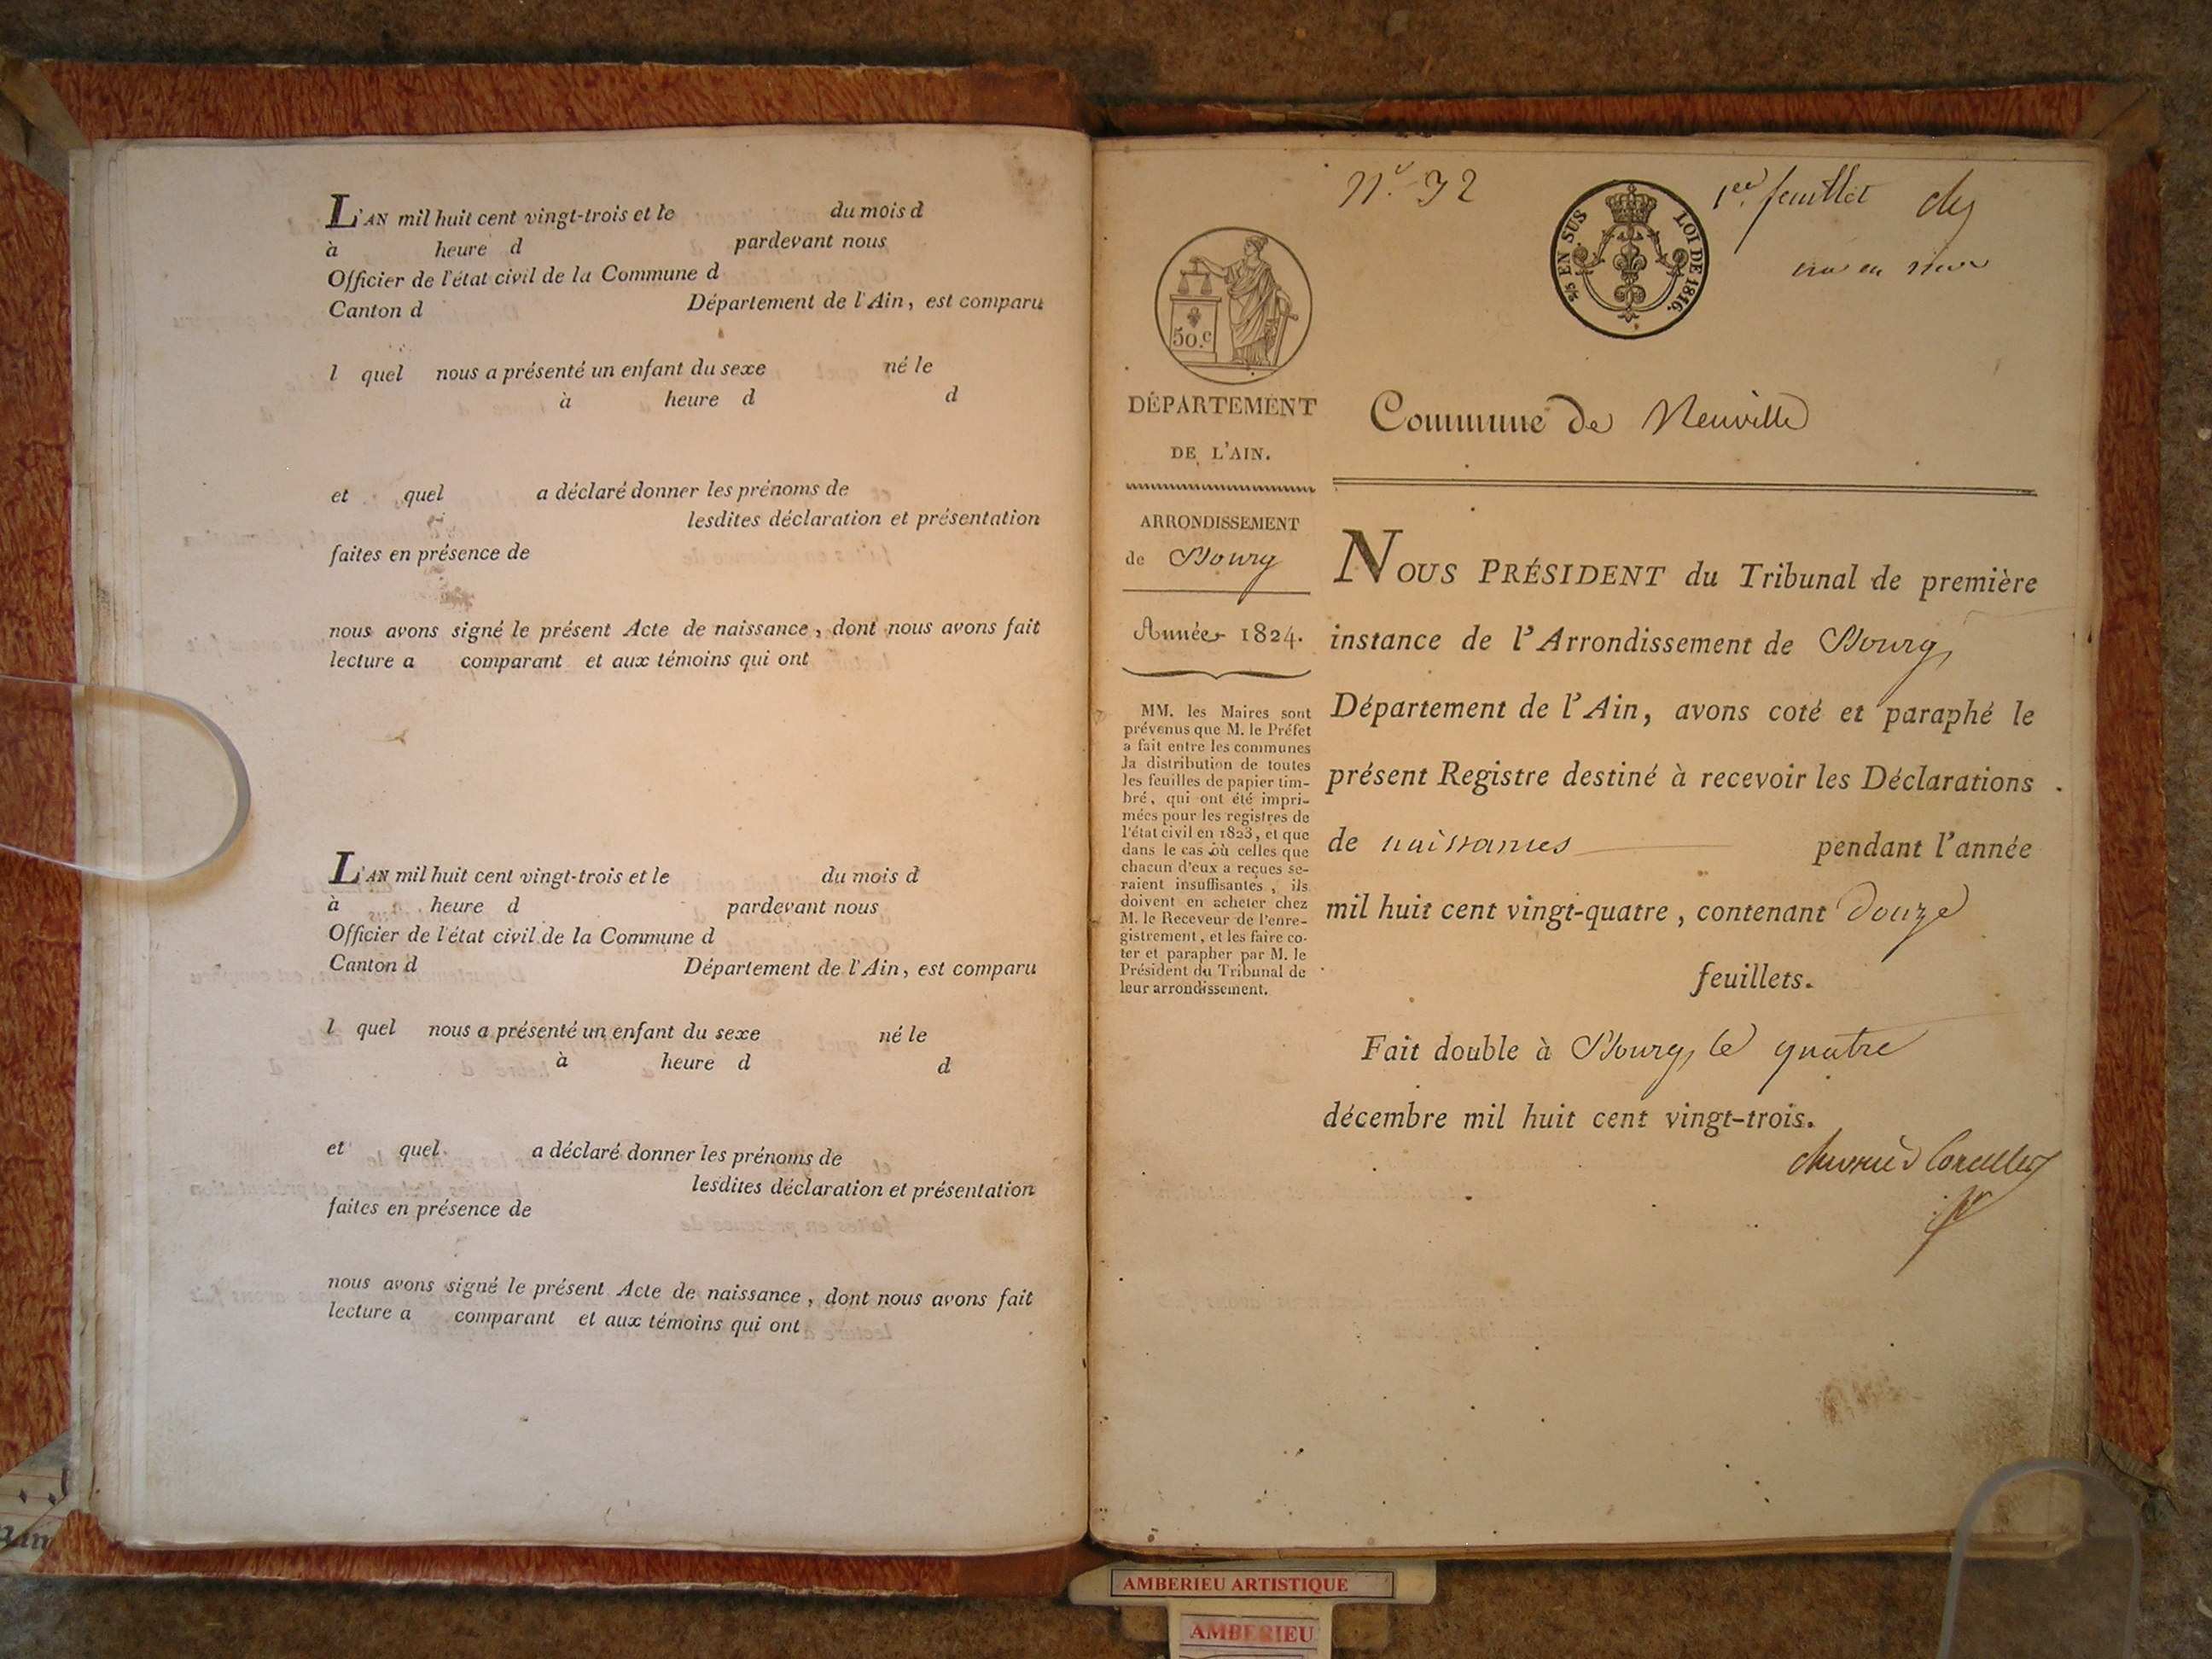 L'AN mil huit cent vingt-trois et le du mois d
à heure d pardevant nous
Officier de l'état civil de la Commune d
Canton d Département de l'Ain, est comparu
l quel nous a présenté un enfant du sexe né le
à heure d d
et quel a déclaré donner les prénoms de
lesdites déclaration et présentation
faites en présence de
nous avons signé le présent Acte de naissance, dont nous avons fait
lecture a comparant et aux témoins qui ont
L'AN mil huit cent vingt-trois et le du mois d
à heure d pardevant nous
Officier de l'état civil de la Commune d
Canton d Département de l'Ain, est comparu
l quel nous a présenté un enfant du sexe né le
à heure d d
et quel a déclaré donner les prénoms de
lesdites déclaration et présentation
faites en présence de
nous avons signé le présent Acte de naissance, dont nous avons fait
lecture a comparant et aux témoins qui ont
1er feuillet
EN SUS LOI DE 1816.
50.c
DÉPARTEMENT
DE L'AIN.
ARRONDISSEMENT
de Bourg
Année 1824.
MM. les Maires sont
prévenus que M. le Préfet
a fait entre les communes
la distribution de toutes
les feuilles de papier tim-
bré, qui ont été impri-
mées pour les registres de
l'état civil en 1823, et que
dans le cas où celles que
chacun d'eux a reçues se-
raient insuffisantes, ils
doivent en acheter chez
M. le Receveur de l'enre-
gistrement, et les faire co-
ter et parapher par M. le
Président du Tribunal de
leur arrondissement.
Commune de Neuville
NOUS PRÉSIDENT du Tribunal de première
instance de l'Arrondissement de Bourg,
Département de l'Ain, avons coté et paraphé le
présent Registre destiné à recevoir les Déclarations
de naissances pendant l'année
mil huit cent vingt-quatre, contenant douze
feuillets.
Fait double à Bourg, le quatre
décembre mil huit cent vingt-trois.
AMBERIEU ARTISTIQUE
AMBERIEU